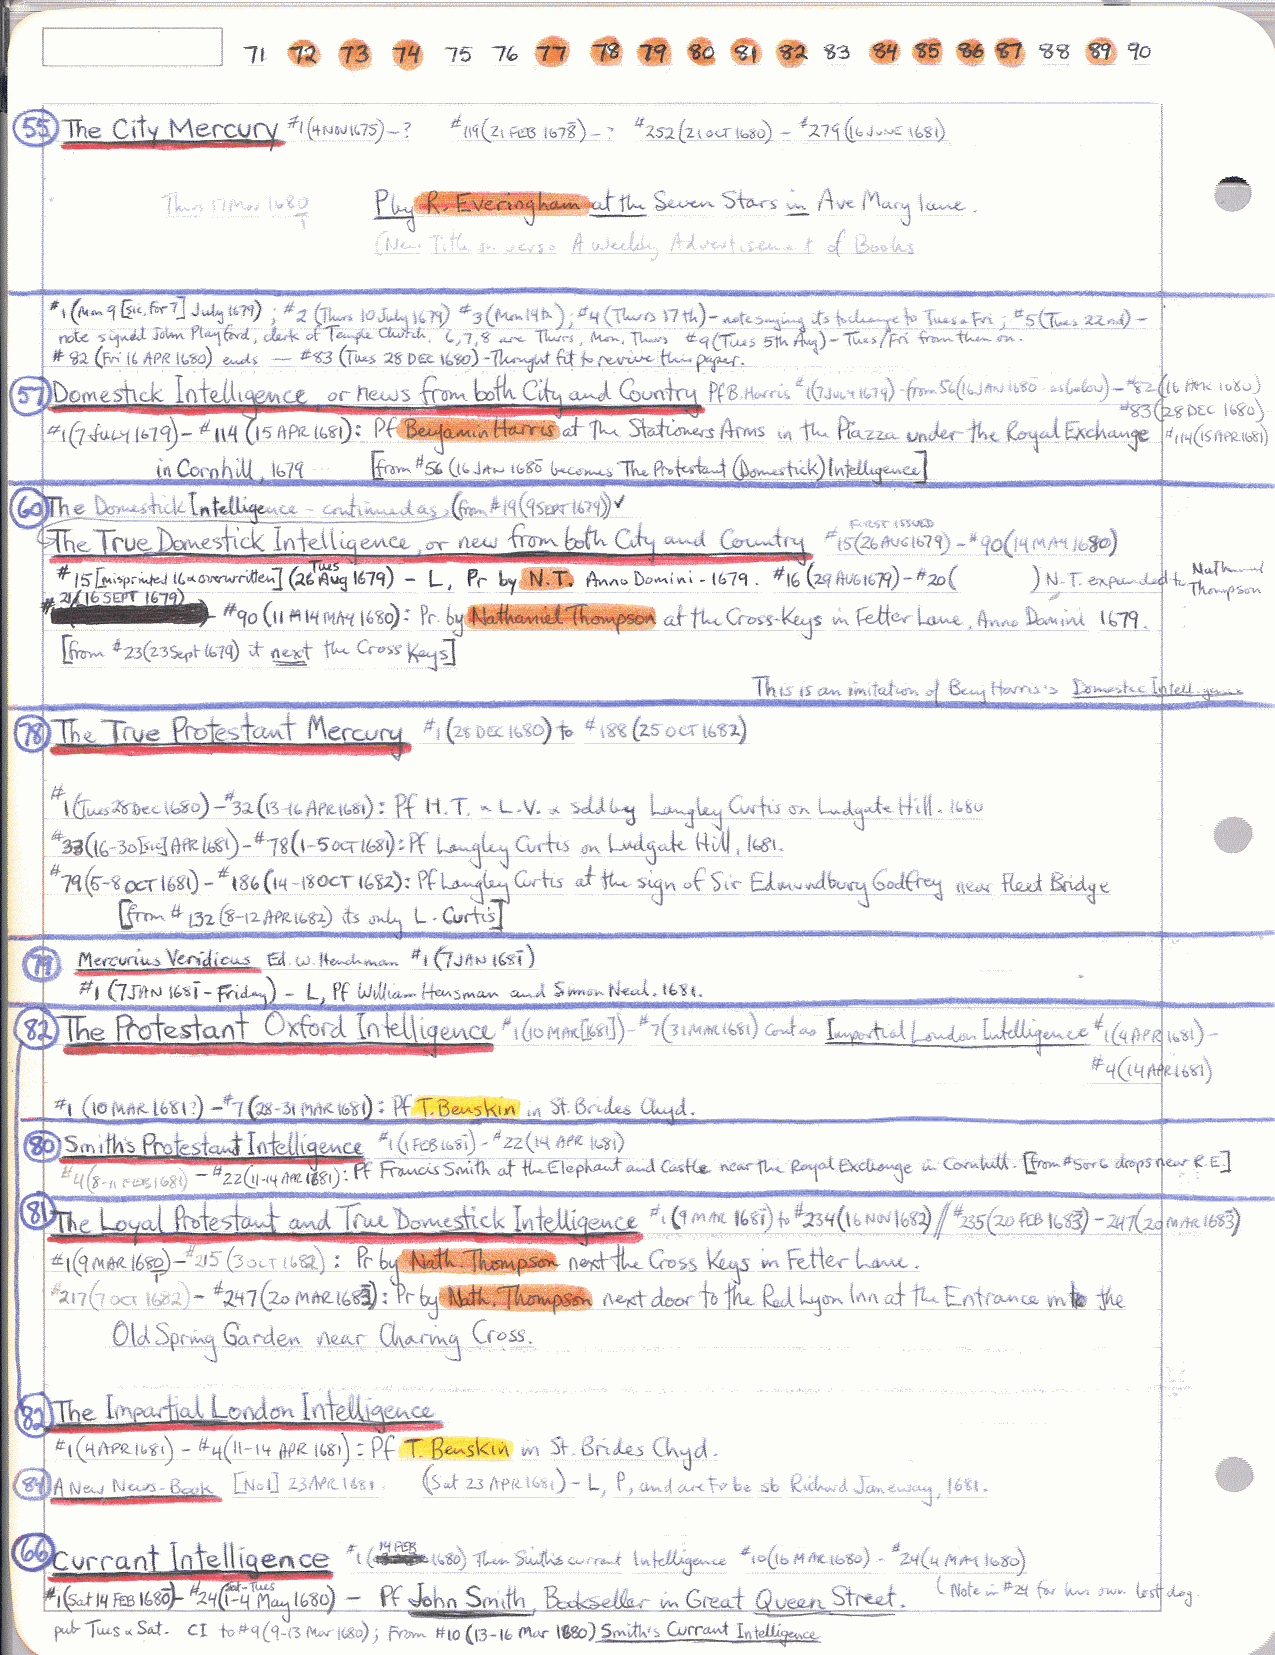 71 72 73 74 75 76 77 78 79 80 81 82 83 84 85 86 87 88 89 90
55 The City Mercury #1(4 NOV 1675) – ? #119(21 FEB 1678) – ? #252(21 OCT 1680) – #279(16 JUNE 1681)
Thurs 17 Mar 1680 P by R. Everingham at the Seven Stars in Ave Mary lane.
(New Title on verso A Weekly Advertisement of Books
#1 (Mon 9 [sic, for 7] July 1679) ; #2 (Thurs 10 July 1679) #3 (Mon 14th) ; #4 (Thurs 17th) – note saying its to change to Tues & Fri ; #5 (Tues 22nd) –
note signed John Playford, clerk of Temple Church. 6, 7, 8 are Thurs, Mon, Thurs #9 (Tues 5th Aug) – Tues/Fri from then on.
#82 (Fri 16 APR 1680) ends — #83 (Tues 28 DEC 1680) – Thought fit to revive this paper.
57 Domestick Intelligence, or news from both City and Country Pf B. Harris #1(7 July 1679) – from 56 (16 JAN 1680 – as below) – #82 (16 APR 1680)
#83 (28 DEC 1680)
#1(7 JULY 1679) – #114 (15 APR 1681): Pf Benjamin Harris at the Stationers Arms in the Piazza under the Royal Exchange #114 (15 APR 1681)
in Cornhill, 1679 [from #56 (16 JAN 1680 becomes The Protestant (Domestick) Intelligence]
60 The Domestick Intelligence – continued as (from #19 (9 SEPT 1679)) ✓
FIRST ISSUED
The True Domestick Intelligence, or new from both City and Country #15 (26 AUG 1679) – #90 (14 MAY 1680)
#15 [misprinted 16 & overwritten] (Tues 26 Aug 1679) – L, Pr by N.T. Anno Domini – 1679. #16 (29 AUG 1679) – #20 ( ) N.T. expanded to Nathaniel Thompson
#21 (16 SEPT 1679) – #90 (11 – 14 MAY 1680): Pr. by Nathaniel Thompson at the Cross-Keys in Fetter Lane, Anno Domini 1679.
[from #23 (23 Sept 1679) it next the Cross Keys]
This is an imitation of Benj Harris's Domestic Intelligence
78 The True Protestant Mercury #1 (28 DEC 1680) to #188 (25 OCT 1682)
#1 (Tues 28 Dec 1680) – #32 (13-16 APR 1681): Pf H.T. & L.V. & sold by Langley Curtis on Ludgate Hill. 1680
#33 (16-30 [sic] APR 1681) – #78 (1-5 OCT 1681): Pf Langley Curtis on Ludgate Hill, 1681.
#79 (5-8 OCT 1681) – #186 (14-18 OCT 1682): Pf Langley Curtis at the sign of Sir Edmundbury Godfrey near Fleet Bridge
[from #132 (8-12 APR 1682) its only L. Curtis]
79 Mercurius Veridicus Ed. W. Henchman #1 (7 JAN 1681)
#1 (7 JAN 1681 – Friday) – L, Pf William Hensman and Simon Neal. 1681.
82 The Protestant Oxford Intelligence #1 (10 MAR [1681]) – #7 (31 MAR 1681) cont as Impartial London Intelligence #1 (4 APR 1681) –
#4 (14 APR 1681)
#1 (10 MAR 1681?) – #7 (28-31 MAR 1681): Pf T. Benskin in St. Brides Chyd.
80 Smith's Protestant Intelligence #1 (1 FEB 1681) – #22 (14 APR 1681)
#4 (8-11 FEB 1681) – #22 (11-14 APR 1681): Pf Francis Smith at the Elephant and Castle near the Royal Exchange in Cornhill. [from #5 or 6 drops near R.E]
81 The Loyal Protestant and True Domestick Intelligence #1 (9 MAR 1681) to #234 (16 NOV 1682) // #235 (20 FEB 1683) – 247 (20 MAR 1683)
#1 (9 MAR 1680) – #215 (3 OCT 1682): Pr by Nath. Thompson next the Cross Keys in Fetter Lane.
#217 (7 OCT 1682) – #247 (20 MAR 1683): Pr by Nath. Thompson next door to the Red Lyon Inn at the Entrance into the
Old Spring Garden near Charing Cross.
82 The Impartial London Intelligence
#1 (4 APR 1681) – #4 (11-14 APR 1681): Pf T. Benskin in St. Brides Chyd.
84 A New News-Book [No1] 23 APR 1681. (Sat 23 APR 1681) – L, P, and are to be sb Richard Janeway, 1681.
66 Currant Intelligence #1 (14 FEB 1680) Then Smith's currant Intelligence #10 (16 MAR 1680) – #24 (4 MAY 1680)
#1 (Sat 14 FEB 1680) – #24 (Sat-Tues 1-4 May 1680) – Pf John Smith, Bookseller in Great Queen Street. (Note in #24 for his own lost dog.
pub Tues & Sat. CI to #9 (9-13 Mar 1680); From #10 (13-16 Mar 1680) Smith's Currant Intelligence